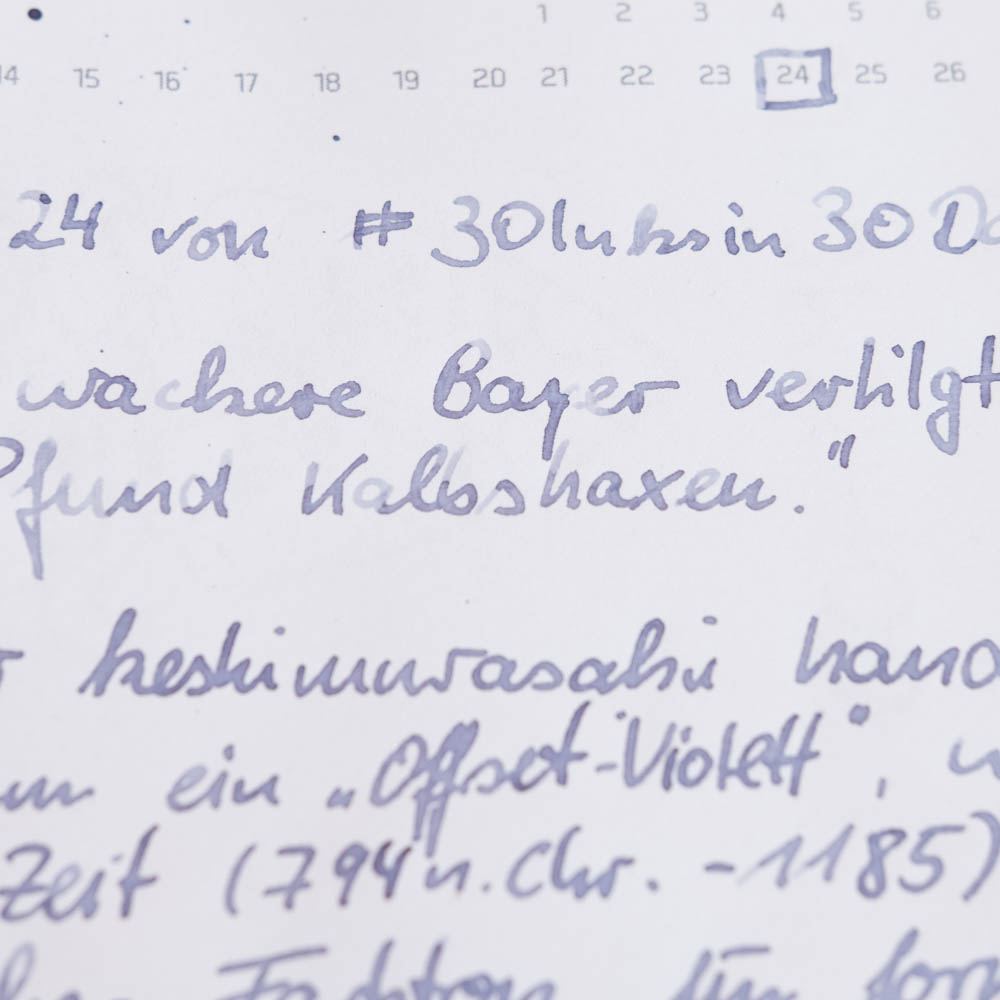 1 2 3 4 5 6
14 15 16 17 18 19 20 21 22 23 24 25 26
24 von #30inksin30Da
wackere Bayer vertilgt
Pfund Kalbshaxen."
keshimurasaki hand
um ein „Offset-Violett",
Zeit (794 n. Chr. - 1185)
Farbton für form